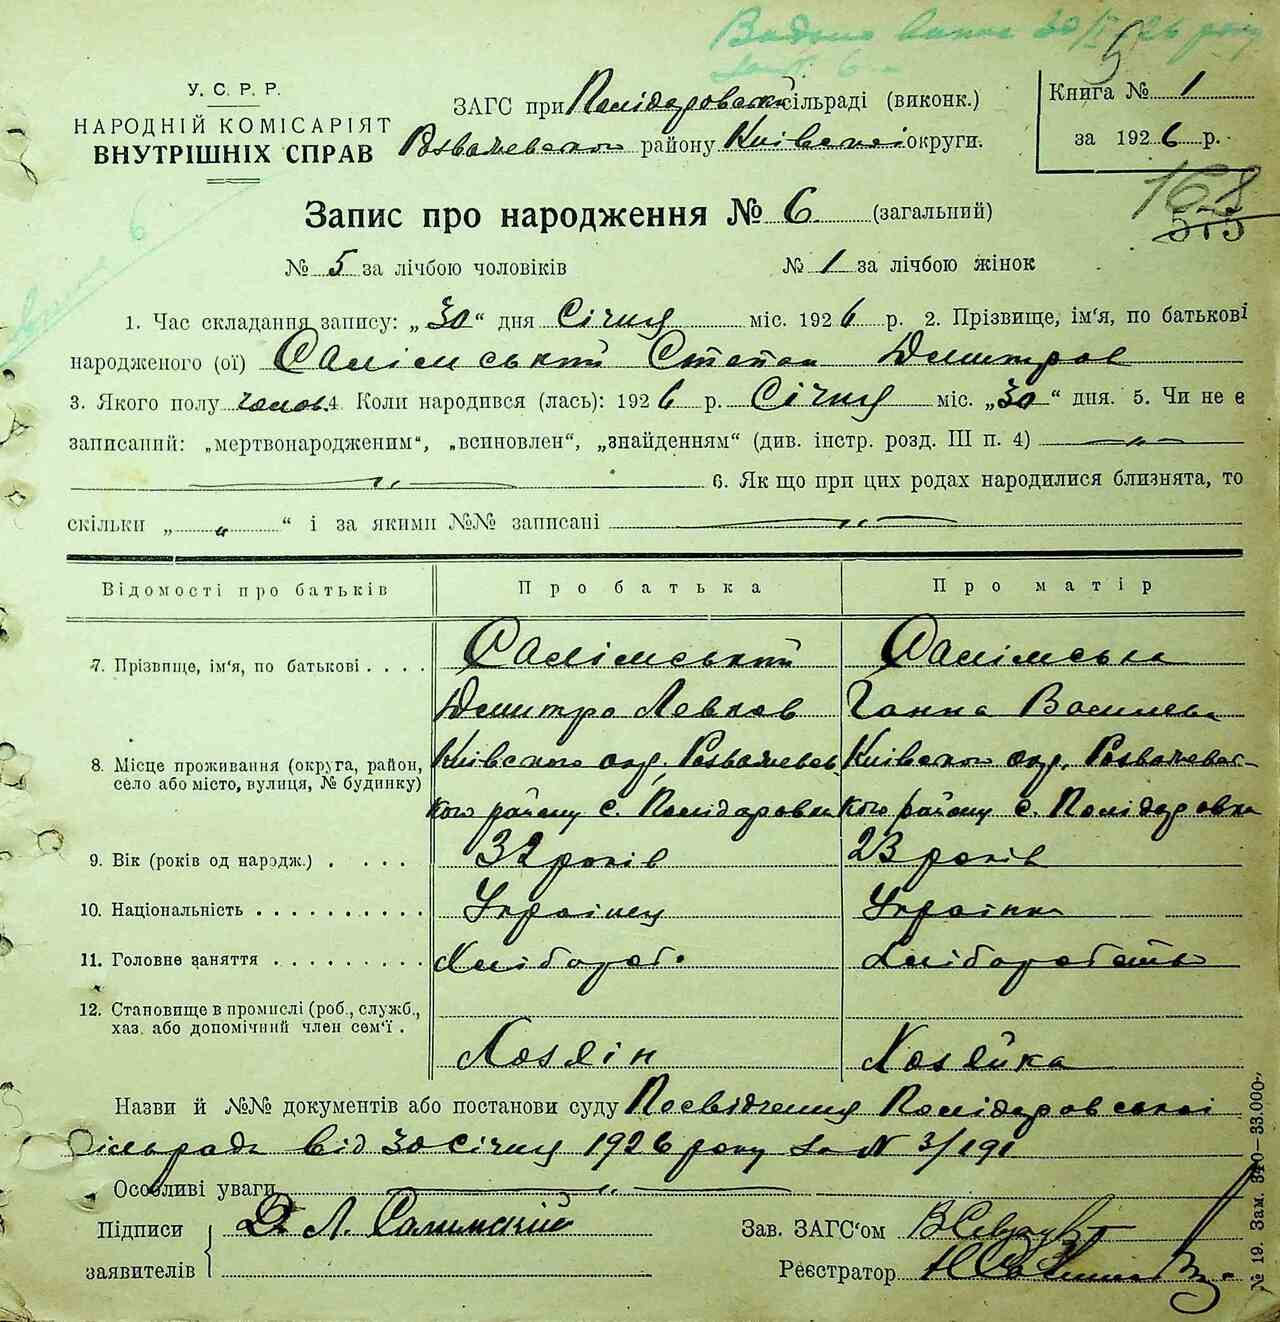 Видано випис 30/I 26 року
за № 6
5
У. С. Р. Р.
НАРОДНІЙ КОМІСАРІЯТ
ВНУТРІШНІХ СПРАВ
ЗАГС при Полідаровській сільраді (виконк.)
Розважевського району Київської округи.
Книга № 1
за 1926 р.
168
575
Запис про народження № 6 (загальний)
№ 5 за лічбою чоловіків № 1 за лічбою жінок
1. Час складання запису: „30“ дня Січня міс. 1926 р. 2. Прізвище, ім'я, по батькові
народженого (ої) Салімський Степан Дмитров
3. Якого полу чолов. 4. Коли народився (лась): 1926 р. Січня міс. „30“ дня. 5. Чи не є
записаний: „мертвонародженим“, „всиновлен“, „знайденням“ (див. інстр. розд. III п. 4) — „ —
— „ — 6. Як що при цих родах народилися близнята, то
скільки „ „ “ і за якими №№ записані — „ —
Відомості про батьків Про батька Про матір
7. Прізвище, ім'я, по батькові . . . . Салімський Салімська
Дмитро Левков Ганна Василева
8. Місце проживання (округа, район, Київського окр. Розважевсь- Київського окр. Розважевсь-
село або місто, вулиця, № будинку) кого району с. Полідаровка кого району с. Полідаровка
9. Вік (років од народж.) . . . . 32 років 23 років
10. Національність . . . . . . . . . . Українец Українка
11. Головне заняття . . . . . . . . . Хлібороб. Хліборобство
12. Становище в промислі (роб., служб.,
хаз. або допомічний член сем'ї . Хозяін Хозяйка
Назви й №№ документів або постанови суду Посвідчення Полідаровської
Сільради від 30 січня 1926 року за № 3/191
Особливі уваги — „ —
Підписи Д. Л. Салимский Зав. ЗАГС'ом
заявителів Реєстратор
№ 19. Зам. 340—33.000.